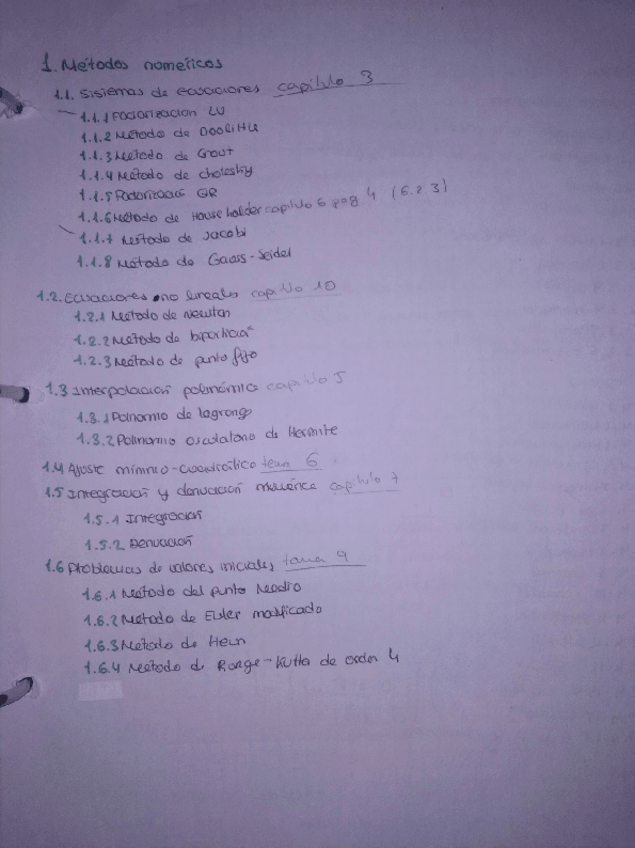 1. Métodos numéricos
1.1. Sistemas de ecuaciones capítulo 3
1.1.1 Factorización LU
1.1.2 Método de Doolittle
1.1.3 Método de Crout
1.1.4 Método de Cholesky
1.1.5 Factorización QR
1.1.6 Método de Householder capítulo 6 pag 4 (6.2.3)
1.1.7 Método de Jacobi
1.1.8 Método de Gauss-Seidel
1.2. Ecuaciones no lineales capítulo 10
1.2.1 Método de Newton
1.2.2 Método de bipartición
1.2.3 Método de punto fijo
1.3 Interpolación polinómica capítulo 5
1.3.1 Polinomio de Lagrange
1.3.2 Polinomio osculatorio de Hermite
1.4 Ajuste mínimo-cuadrático tema 6
1.5 Integración y derivación numérica capítulo 7
1.5.1 Integración
1.5.2 Derivación
1.6 Problemas de valores iniciales tema 9
1.6.1 Método del punto Medio
1.6.2 Método de Euler modificado
1.6.3 Método de Heun
1.6.4 Método de Runge-Kutta de orden 4